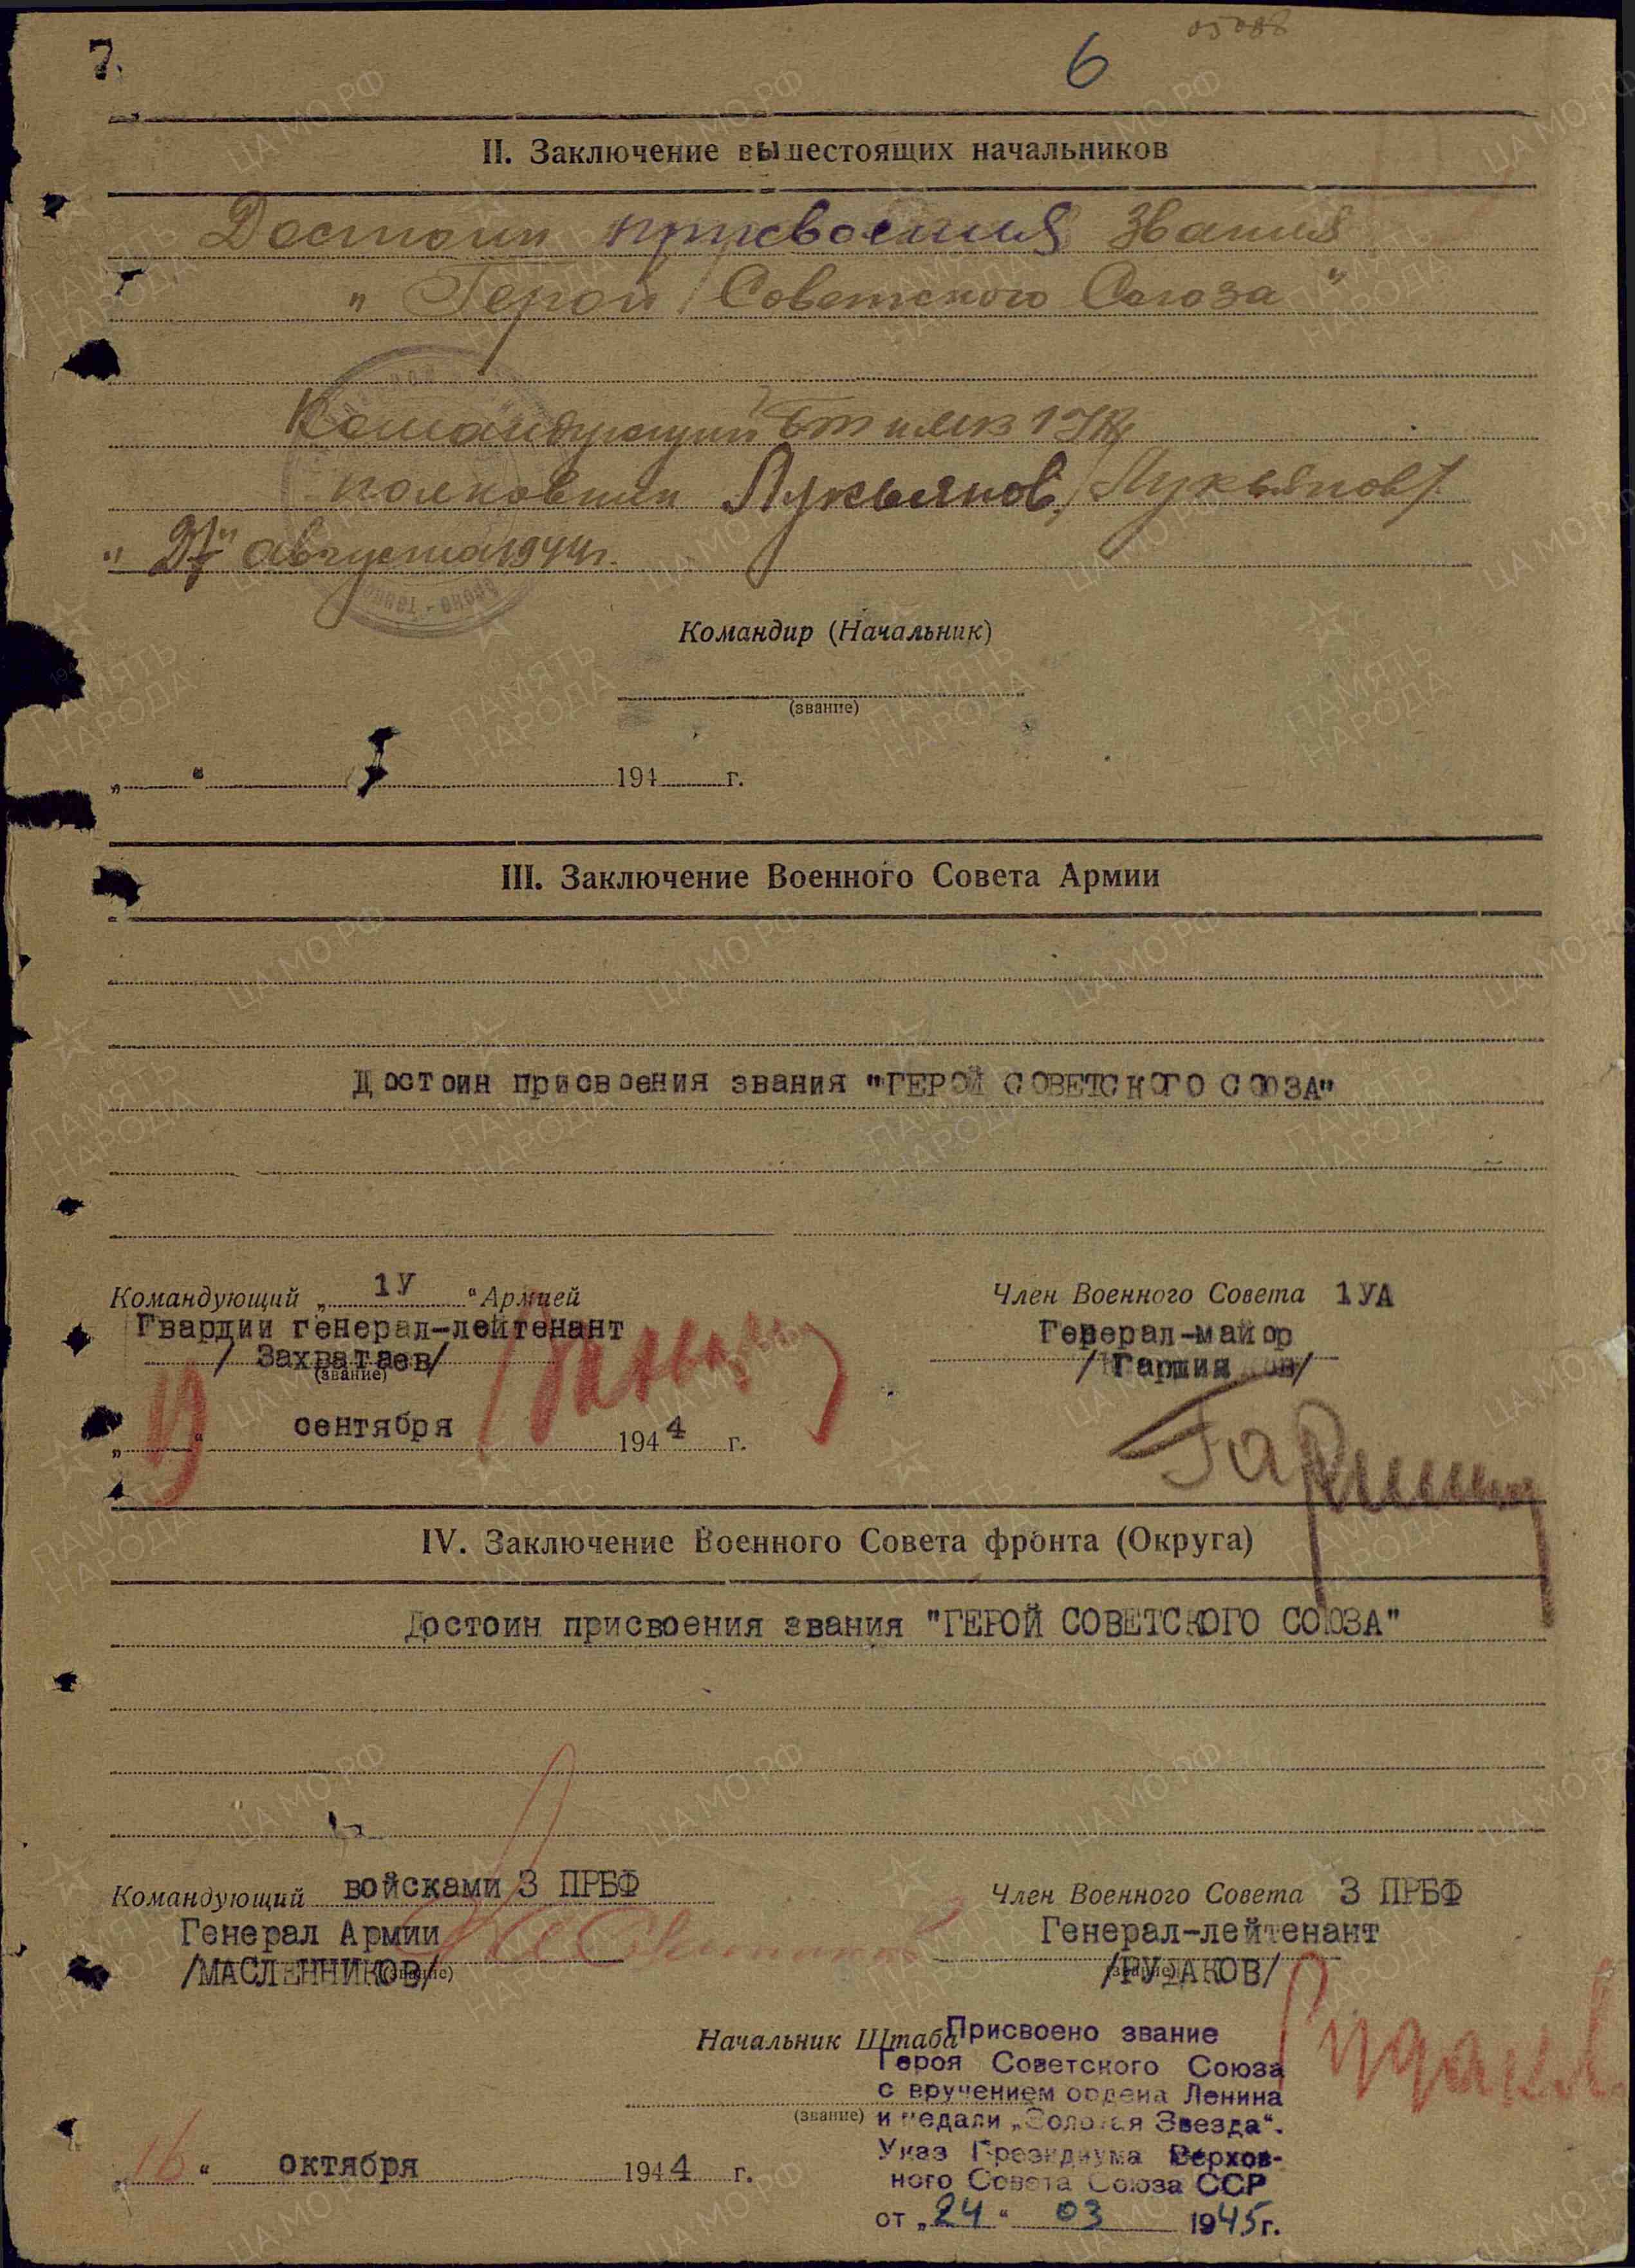 7.
6
05088
II. Заключение вышестоящих начальников
Достоин присвоения звания
"Герой Советского Союза"
Командующий БТ и МВ 1УА
полковник Лукьянов /Лукьянов/.
"27" августа 1944 г.
Командир (Начальник)
(звание)
„ “ 194 г.
III. Заключение Военного Совета Армии
Достоин присвоения звания "ГЕРОЙ СОВЕТСКОГО СОЮЗА"
Командующий „ 1У “ Армией
Гвардии генерал-лейтенант
/ Захватаев/
(звание)
сентября 1944 г.
Член Военного Совета 1УА
Генерал-майор
IV. Заключение Военного Совета фронта (Округа)
Достоин присвоения звания "ГЕРОЙ СОВЕТСКОГО СОЮЗА"
Командующий войсками 3 ПРБФ
Генерал Армии
/МАСЛЕННИКОВ/
(звание)
Член Военного Совета 3 ПРБФ
Генерал-лейтенант
/РУДАКОВ/
Рудаков
Начальник Штаба
(звание)
„16“ октября 1944 г.
Присвоено звание
Героя Советского Союза
с вручением ордена Ленина
и медали „Золотая Звезда“.
Указ Президиума Верхов-
ного Совета Союза ССР
от „24“ 03 1945 г.
ЦА МО РФ
ПАМЯТЬ
НАРОДА